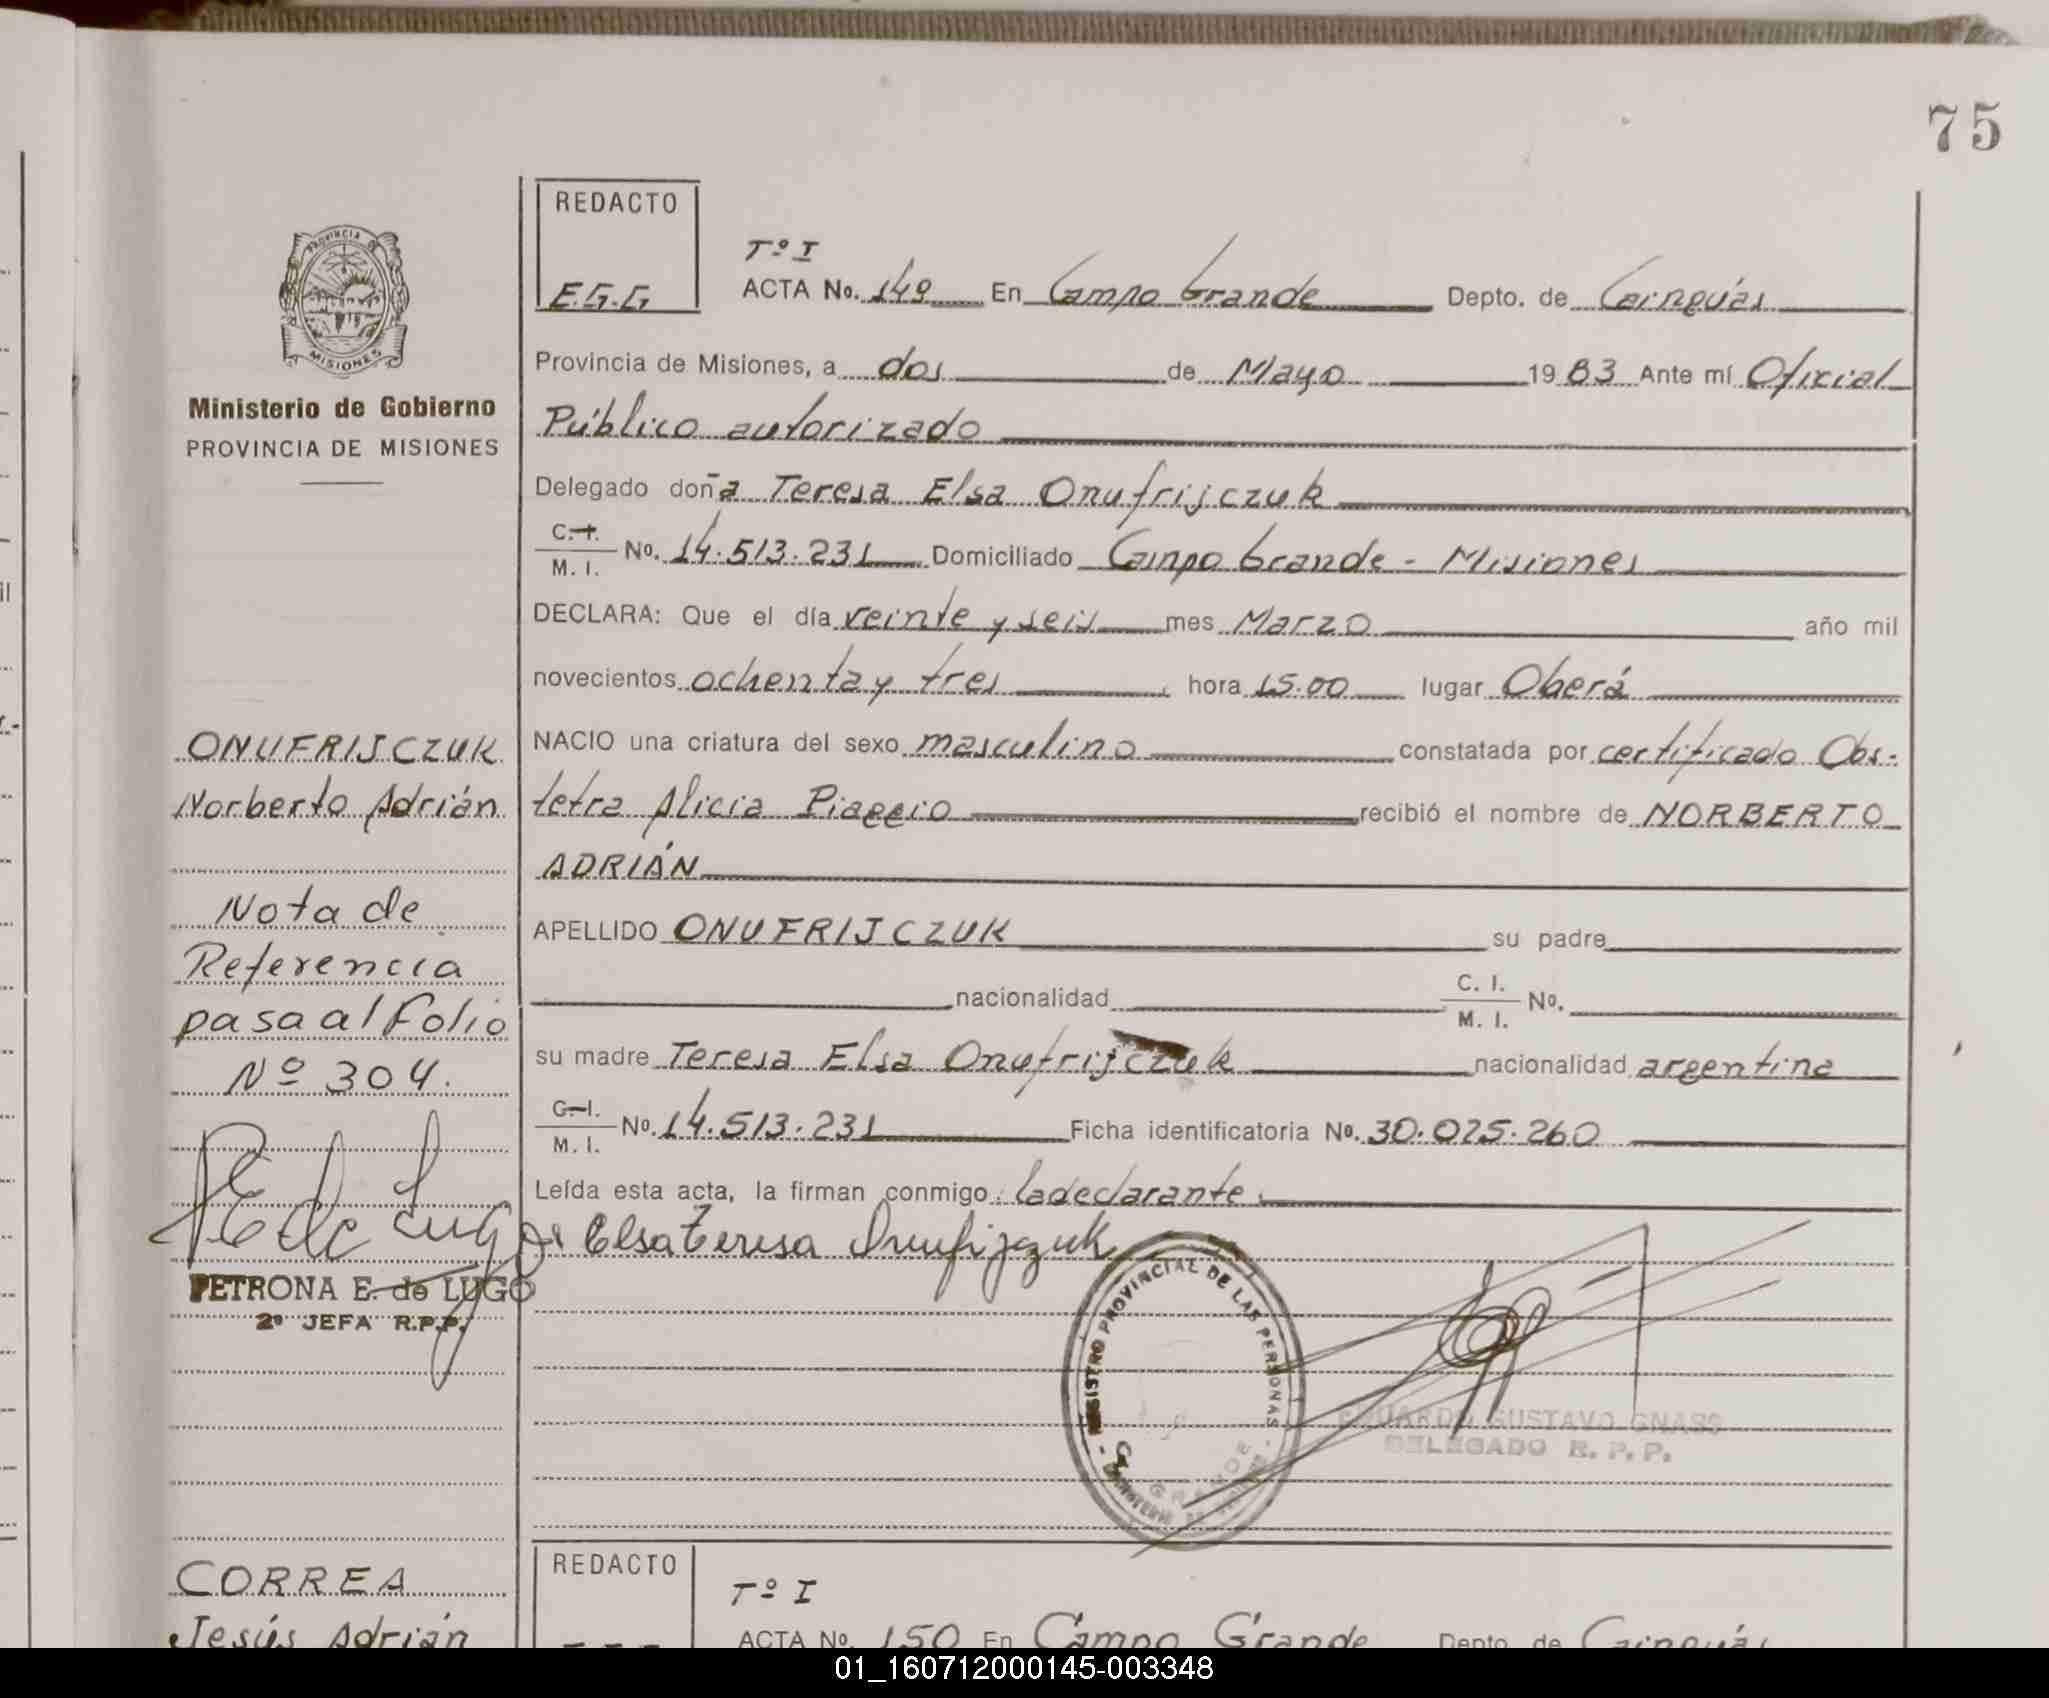 75
REDACTO
E.G.G
PROVINCIA DE
MISIONES
Tº I
ACTA No. 149 En Campo Grande Depto. de Cainguás
Provincia de Misiones, a dos de Mayo 1983 Ante mí Oficial
Público autorizado
Delegado doña Teresa Elsa Onufrijczuk
C.I. M. I. No. 14.513.231 Domiciliado Campo Grande - Misiones
DECLARA: Que el día veinte y seis mes Marzo año mil
novecientos ochenta y tres hora 15.00 lugar Oberá
NACIO una criatura del sexo masculino constatada por certificado Obs-
tetra Alicia Piaggio recibió el nombre de NORBERTO
ADRIÁN
APELLIDO ONUFRIJCZUK su padre
nacionalidad C. I. M. I. No.
su madre Teresa Elsa Onufrijczuk nacionalidad argentina
C.I. M. I. No. 14.513.231 Ficha identificatoria No. 30.025.260
Leída esta acta, la firman conmigo: la declarante.
Elsa Teresa Onufrijczuk
REGISTRO PROVINCIAL DE LAS PERSONAS
GRANDE
EDUARDO GUSTAVO GNASS
DELEGADO R. P. P.
Ministerio de Gobierno
PROVINCIA DE MISIONES
ONUFRIJCZUK
Norberto Adrián
Nota de
Referencia
pasa al Folio
Nº 304.
PE de Lugo
PETRONA E. de LUGO
2º JEFA R.P.P.
CORREA
Jesús Adrián
REDACTO
Tº I
ACTA No. 150 En Campo Grande Depto. de Cainguás
01_160712000145-003348